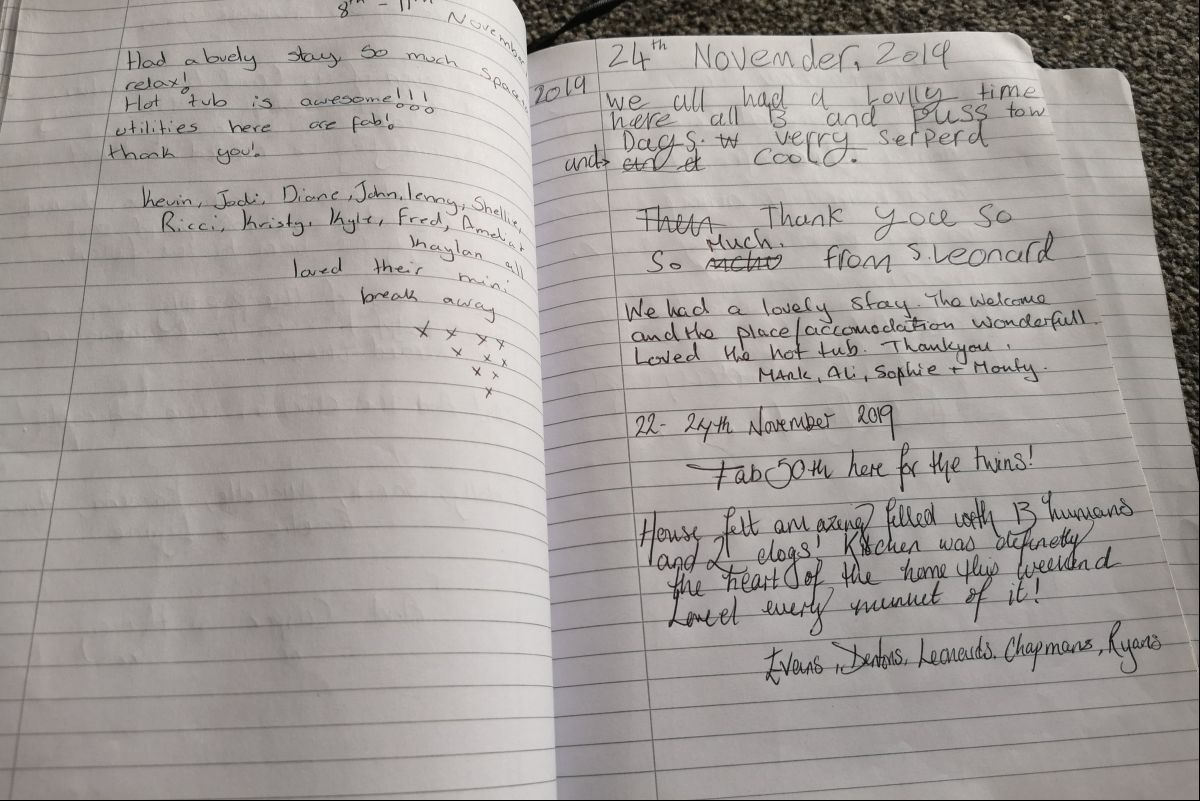 8th - 11th November 2019
Had a lovely stay, So much space to
relax!
Hot tub is awesome!!!
utilities here are fab!
thank you!
Kevin, Jodi, Diane, John, Lenny, Shellie,
Ricci, Kristy, Kyle, Fred, Amelia +
Kaylan all
loved their mini
break away
x x x x
x x x
x x
x
24th Novender, 2019
we all had a Lovlly time
here all 13 and pluss tow
Dags. verry serperd
and cooly.
Then Thank yoce so
Much.
So mcho from S. Leonard
We had a lovely stay. The Welcome
and the place/accomodation wonderfull.
Loved the hot tub. Thankyou.
Mark, Ali, Sophie + Monty.
22- 24th November 2019
Fab 50th here for the twins!
House felt amazing filled with 13 humans
and 2 dogs! Kitchen was definetly
the heart of the home this weekend
Loved every munuet of it!
Evans, Dentons, Leonards, Chapmans, Ryans